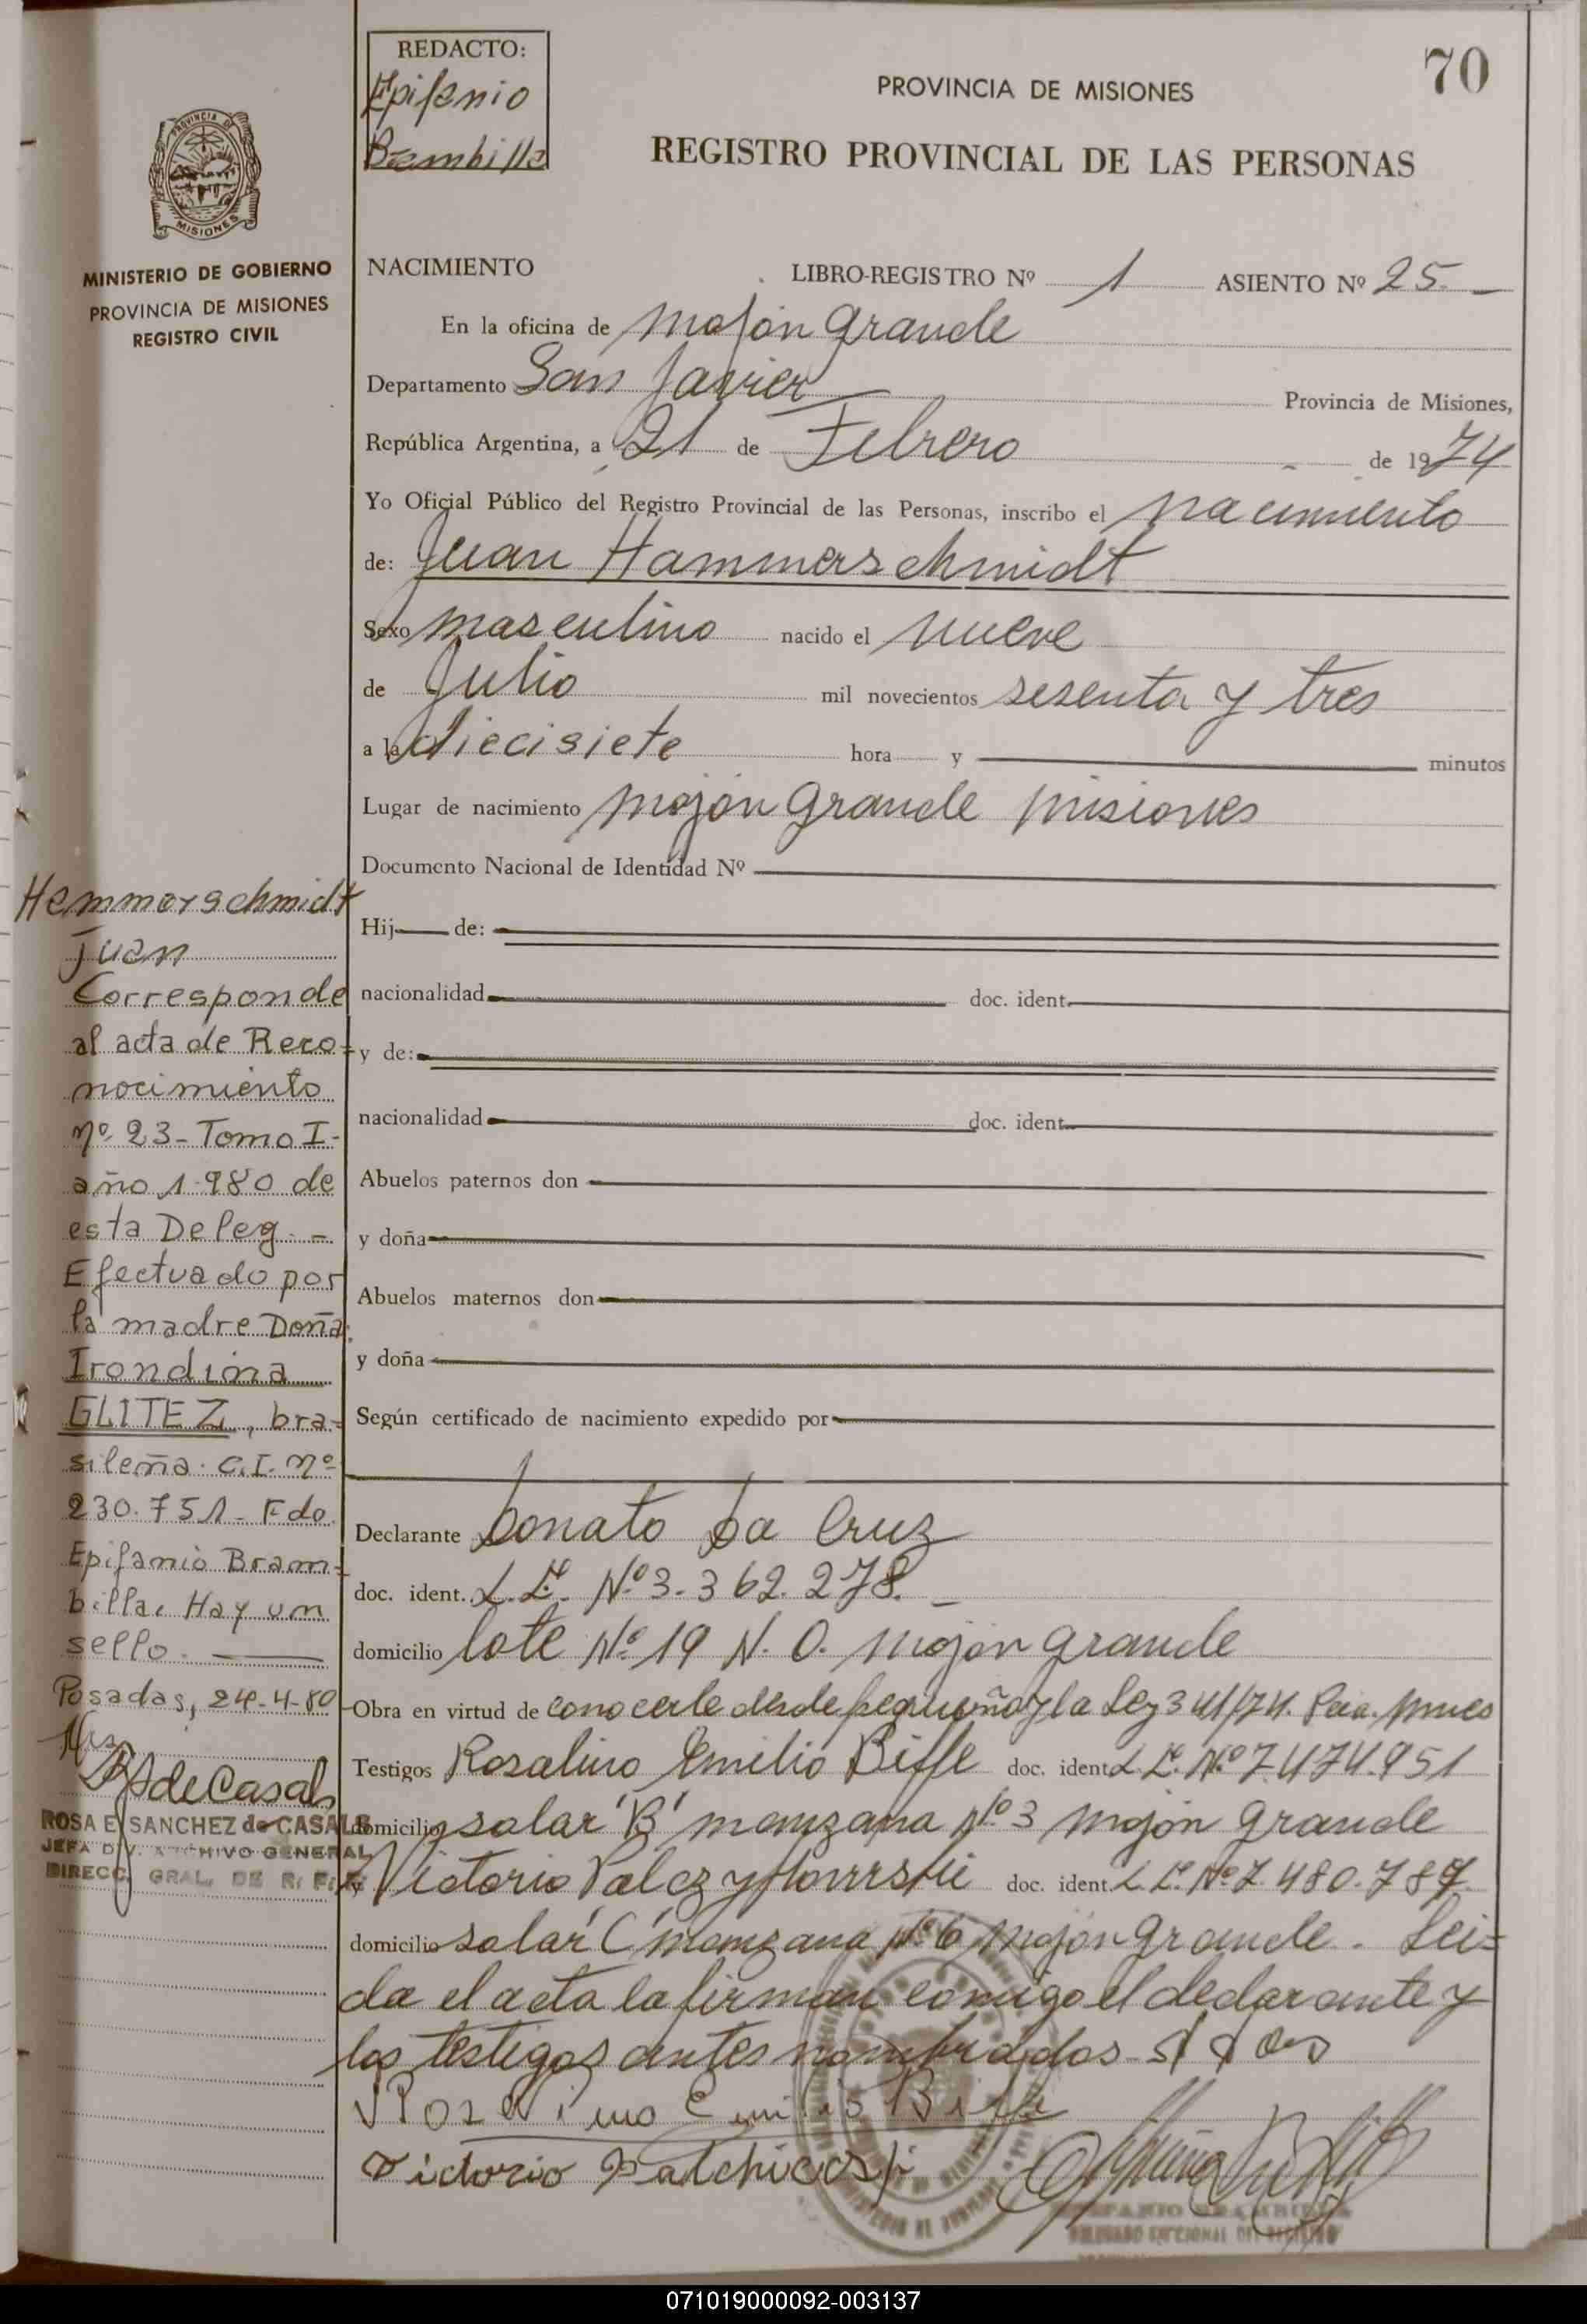 REDACTO:
Epifanio
Brambilla
70
PROVINCIA DE MISIONES
REGISTRO PROVINCIAL DE LAS PERSONAS
PROVINCIA DE
MISIONES
MINISTERIO DE GOBIERNO
PROVINCIA DE MISIONES
REGISTRO CIVIL
NACIMIENTO LIBRO-REGISTRO Nº 1 ASIENTO Nº 25.
En la oficina de Mojón Grande
Departamento San Javier Provincia de Misiones,
República Argentina, a 21 de Febrero de 1974
Yo Oficial Público del Registro Provincial de las Personas, inscribo el nacimiento
de: Juan Hammerschmidt
Sexo masculino nacido el nueve
de Julio mil novecientos sesenta y tres
a la diecisiete hora y minutos
Lugar de nacimiento Mojón Grande Misiones
Documento Nacional de Identidad Nº
Hij de:
nacionalidad doc. ident.
y de:
nacionalidad doc. ident.
Abuelos paternos don
y doña
Abuelos maternos don
y doña
Según certificado de nacimiento expedido por
Declarante Donato Da Cruz
doc. ident. L.E. Nº 3.362.278.
domicilio lote Nº 19 N. O. Mojón Grande
Obra en virtud de conocerle desde pequeño y la Ley 341/74.
Testigos Rosalino Emilio Biffe doc. ident. L.E. Nº 7.474.951
domicilio solar 'B' manzana Nº 3 Mojón Grande
y Victorio doc. ident. L.E. Nº 7.480.787
domicilio solar 'C' manzana Nº 6 Mojón Grande. Leí=
da el acta la firman conmigo el declarante y
los testigos antes nombrados
Victorio
Hammerschmidt
Juan
Corresponde
al acta de Reco-
nocimiento
Nº 23-Tomo I-
año 1.980 de
esta Deleg.-
Efectuado por
la madre Doña:
Irondina
GLITEZ, bra-
sileña. C.I. Nº
230.751- Fdo.
Epifanio Bram-
billa. Hay un
sello.
Posadas, 24-4-80
ROSA E. SANCHEZ de CASALS
JEFA DIV. ARCHIVO GENERAL
DIRECC. GRAL. DE R. P. P.
071019000092-003137